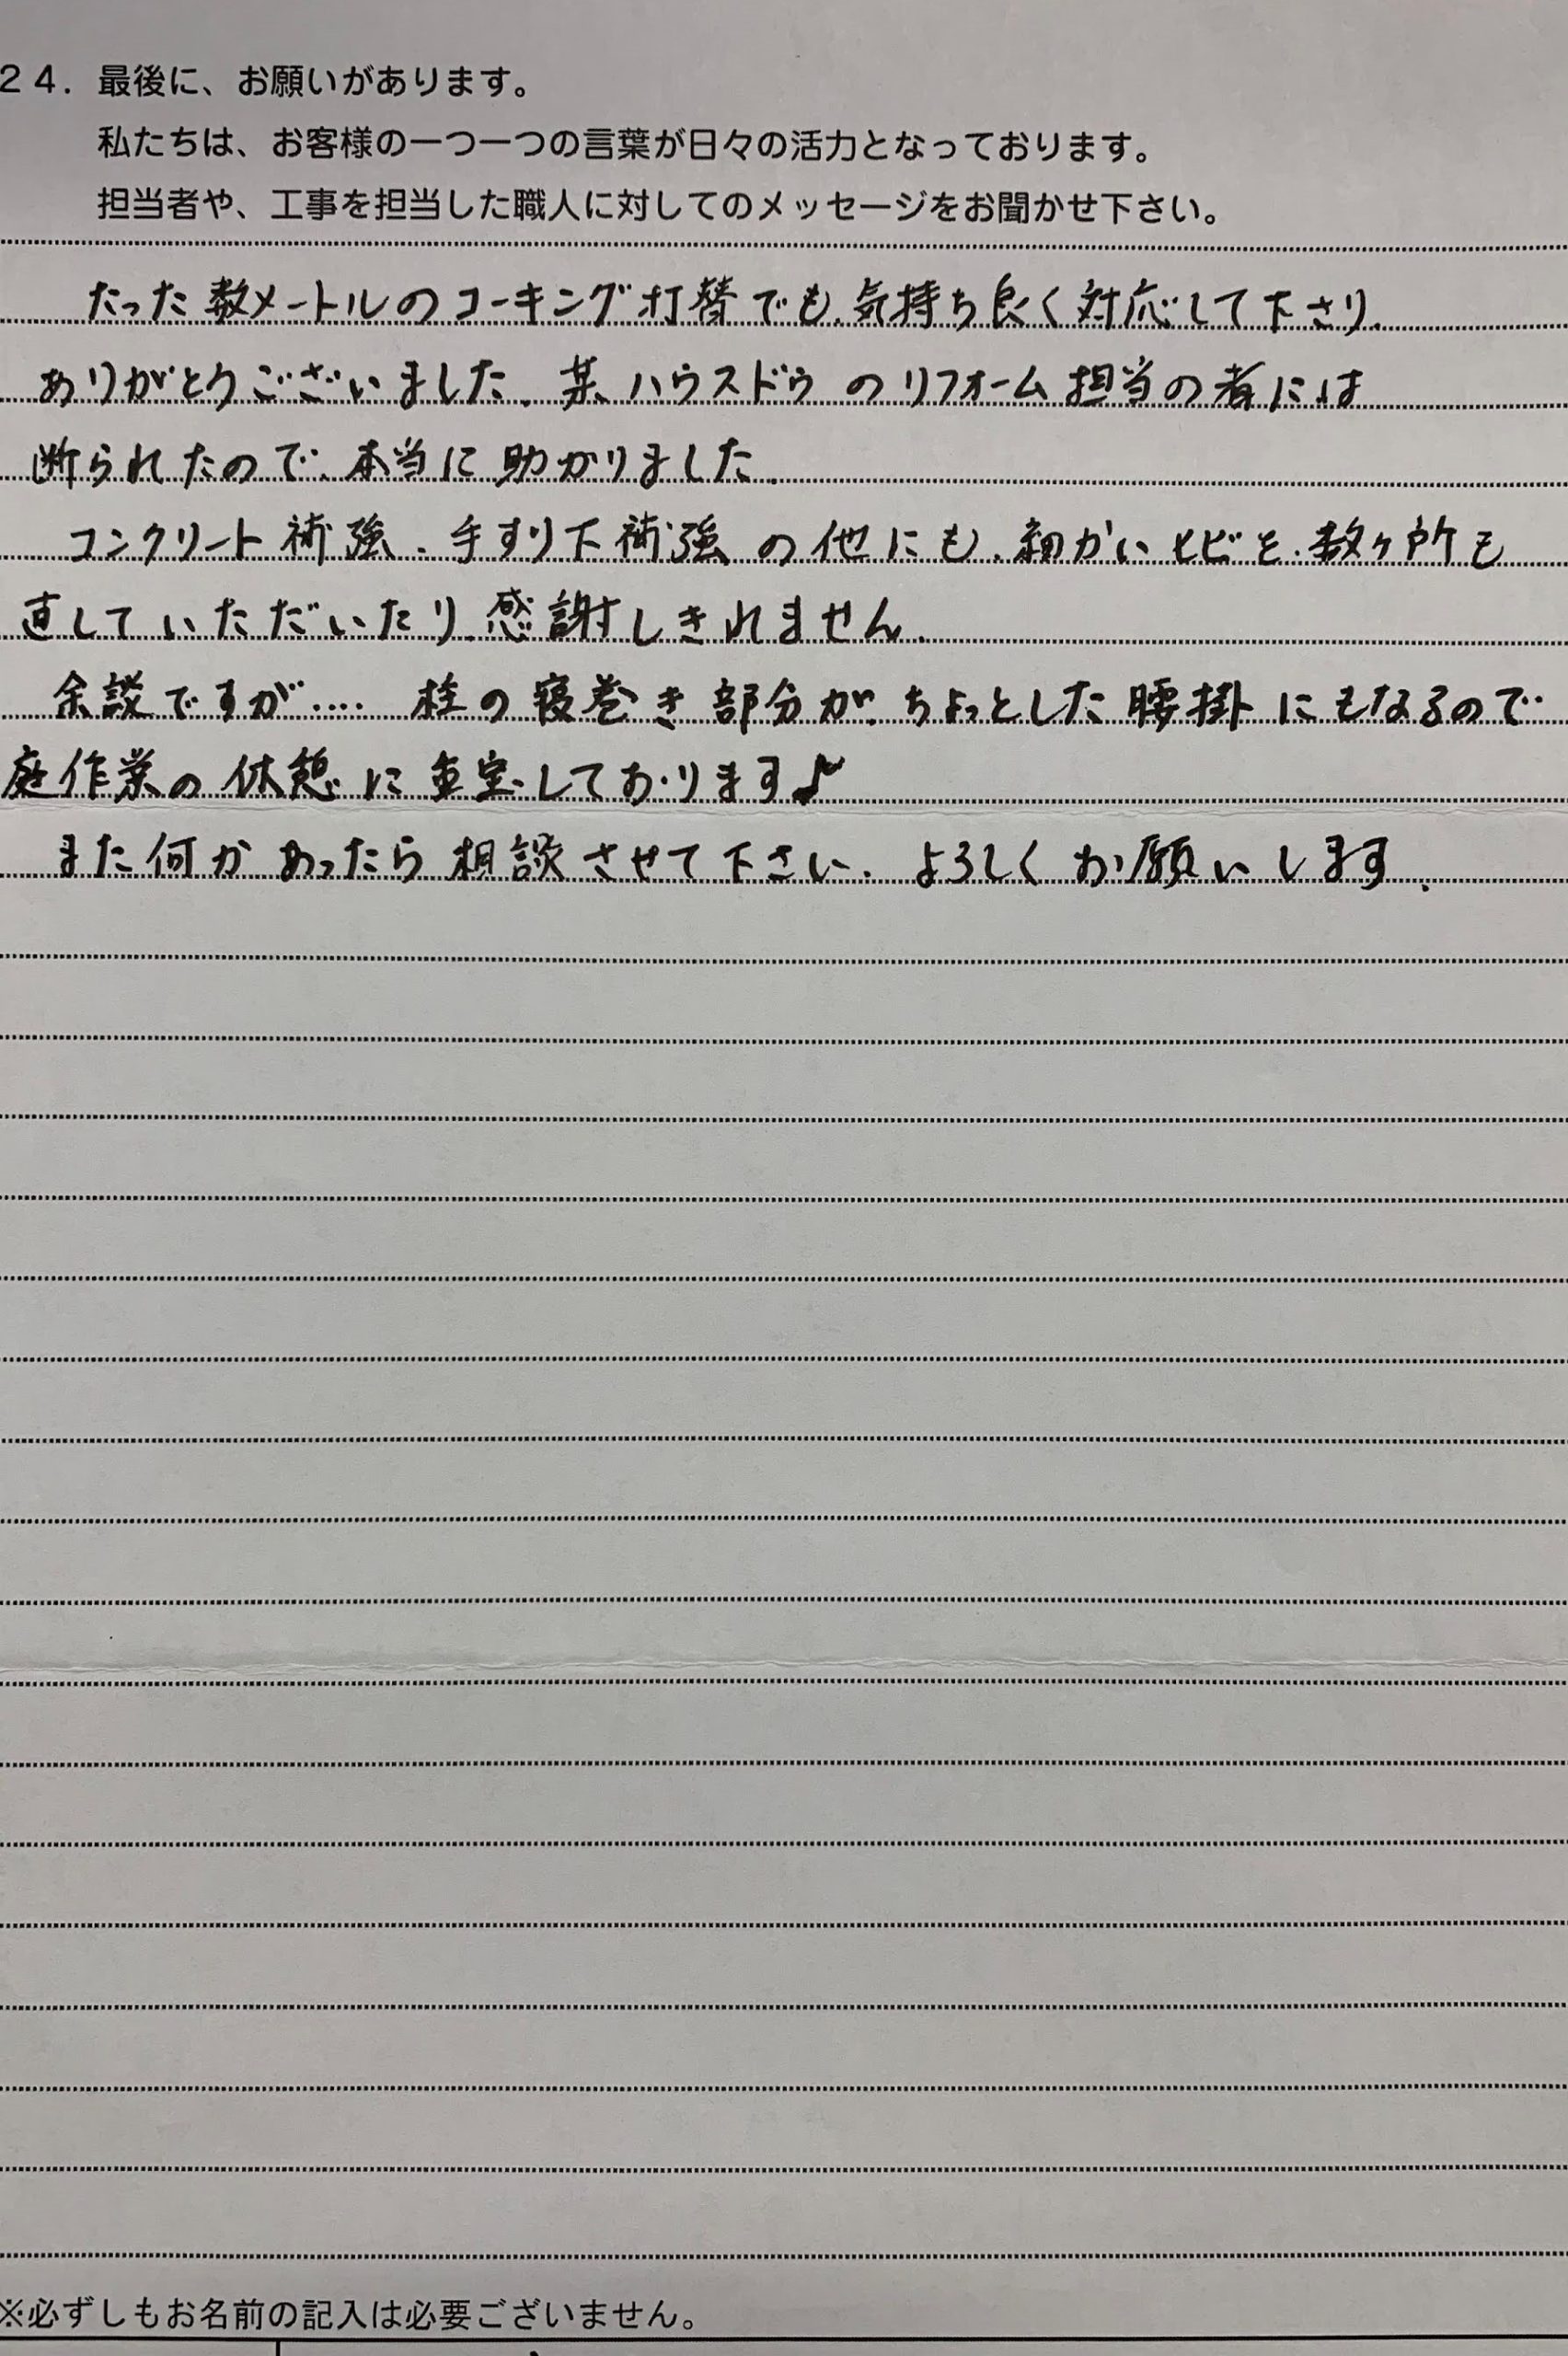 24. 最後に、お願いがあります。
私たちは、お客様の一つ一つの言葉が日々の活力となっております。
担当者や、工事を担当した職人に対してのメッセージをお聞かせ下さい。
たった数メートルのコーキング打替でも、気持ち良く対応して下さり、
ありがとうございました。某、ハウスドゥのリフォーム担当の者には
断られたので、本当に助かりました。
コンクリート補強、手すり下補強の他にも、細かいヒビを、数ヶ所も
直していただいたり、感謝しきれません。
余談ですが.... 柱の寝巻き部分が、ちょっとした腰掛にもなるので
庭作業の休憩に重宝しております♪
また何かあったら相談させて下さい。よろしくお願いします。
※必ずしもお名前の記入は必要ございません。